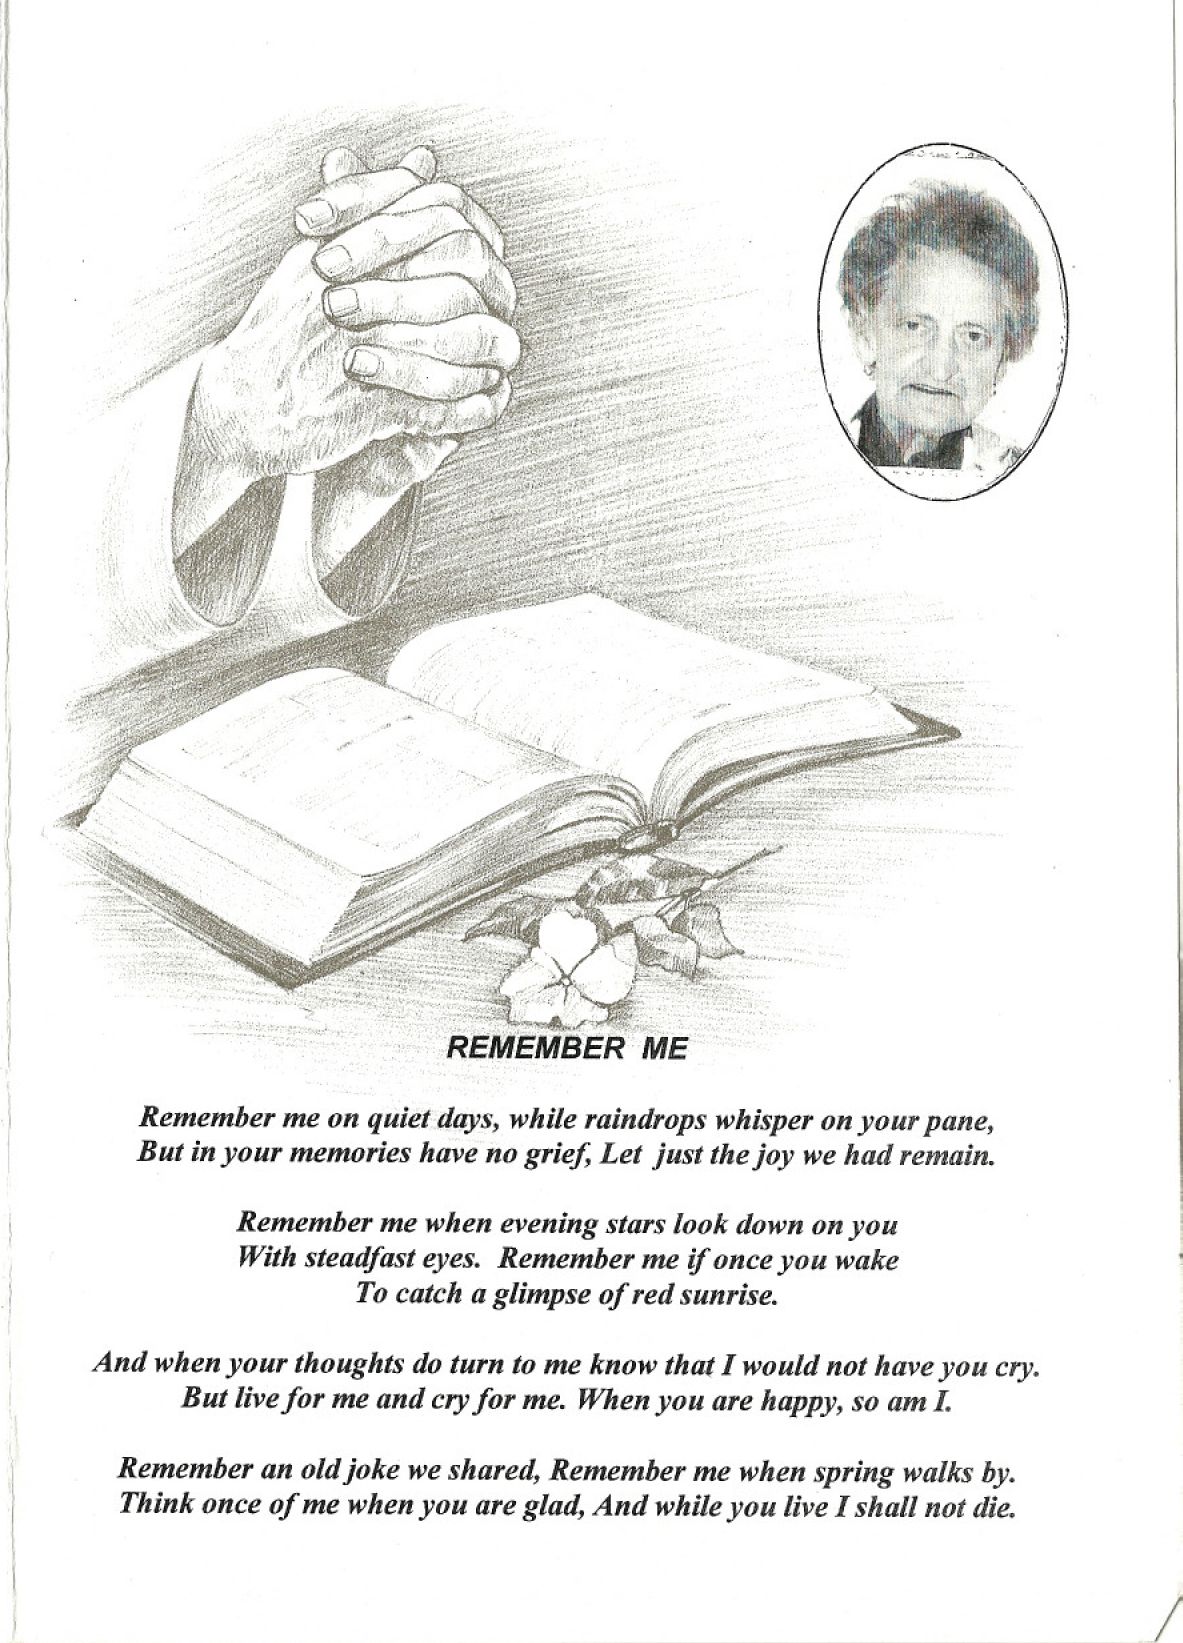 REMEMBER ME
Remember me on quiet days, while raindrops whisper on your pane,
But in your memories have no grief, Let just the joy we had remain.
Remember me when evening stars look down on you
With steadfast eyes. Remember me if once you wake
To catch a glimpse of red sunrise.
And when your thoughts do turn to me know that I would not have you cry.
But live for me and cry for me. When you are happy, so am I.
Remember an old joke we shared, Remember me when spring walks by.
Think once of me when you are glad, And while you live I shall not die.